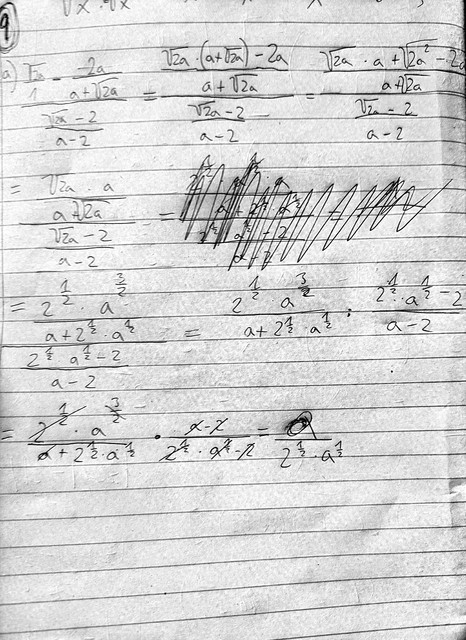 √x · √x
9
a) √2a/1 - 2a/(a+√2a) / (√2a - 2)/(a-2) = (√2a · (a+√2a) - 2a)/(a+√2a) / (√2a - 2)/(a-2) = (√2a · a + √2a² - 2a)/(a+√2a) / (√2a - 2)/(a-2)
= (√2a · a)/(a+√2a) / (√2a - 2)/(a-2) =
= (2^½ · a^(3/2))/(a+2^½ · a^½) / (2^½ a^½ - 2)/(a-2) = (2^½ · a^(3/2))/(a+2^½ · a^½) : (2^½ · a^½ - 2)/(a-2)
= (2^½ · a^(3/2))/(a+2^½ · a^½) · (a-2)/(2^½ · a^½ - 2) = a/(2^½ · a^½)